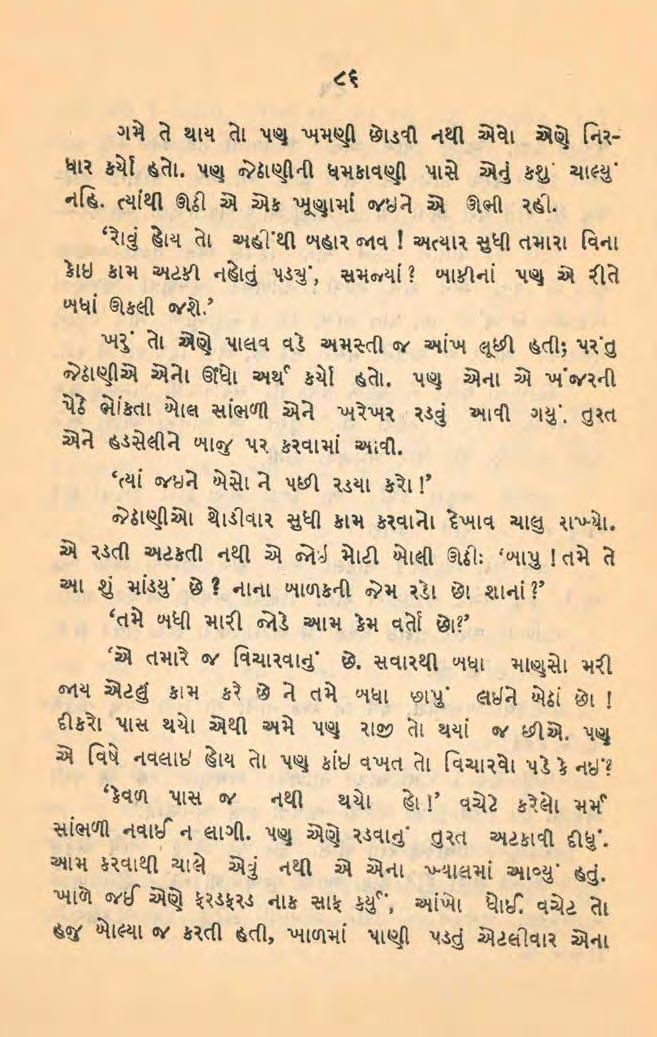 ૮૬
ગમે તે થાય તો પણ ખમણી છોડવી નથી એવો એણે નિર-
ધાર કર્યો હતો. પણ જેઠાણીની ધમકાવણી પાસે એનું કશું ચાલ્યું
નહિ. ત્યાંથી ઊઠી એ એક ખૂણામાં જઇને એ ઊભી રહી.
‘રોવું હોય તો અહીંથી બહાર જાવ ! અત્યાર સુધી તમારા વિના
કોઇ કામ અટકી નહોતું પડ્યું, સમજ્યાં? બાકીનાં પણ એ રીતે
બધાં ઊકલી જશે.’
ખરું તો એણે પાલવ વડે અમસ્તી જ આંખ લૂછી હતી; પરંતુ
જેઠાણીએ એનો ઊંધો અર્થ કર્યો હતો. પણ એના એ ખંજરની
પેઠે ભોંકતા બોલ સાંભળી એને ખરેખર રડવું આવી ગયું. તુરત
એને હડસેલીને બાજુ પર કરવામાં આવી.
‘ત્યાં જઇને બેસો ને પછી રડયા કરો !’
જેઠાણીઓ થોડીવાર સુધી કામ કરવાનો દેખાવ ચાલુ રાખ્યો.
એ રડતી અટકતી નથી એ જોઇ મોટી બોલી ઊઠીઃ ‘બાપુ ! તમે તે
આ શું માંડયું છે ? નાના બાળકની જેમ રડો છો શાનાં ?’
‘તમે બધી મારી જોડે આમ કેમ વર્તો છો?’
‘એ તમારે જ વિચારવાનું છે. સવારથી બધા માણસો મરી
જાય એટલું કામ કરે છે ને તમે બધા છાપું લઇને બેઠાં છો !
દીકરો પાસ થયો એથી અમે પણ રાજી તો થયાં જ છીએ. પણ
એ વિષે નવલાઇ હોય તો પણ કાંઇ વખત તો વિચારવો પડે કે નઇં?
‘કેવળ પાસ જ નથી થયો હો !’ વચેટ કરેલો મર્મ
સાંભળી નવાઈ ન લાગી. પણ એણે રડવાનું તુરત અટકાવી દીધું.
આમ કરવાથી ચાલે એવું નથી એ એના ખ્યાલમાં આવ્યું હતું.
ખાળે જઈ એણે ફરડફરડ નાક સાફ કર્યું, આંખો ધોઈ. વચેટ તો
હજુ બોલ્યા જ કરતી હતી, ખાળમાં પાણી પડતું એટલીવાર એના